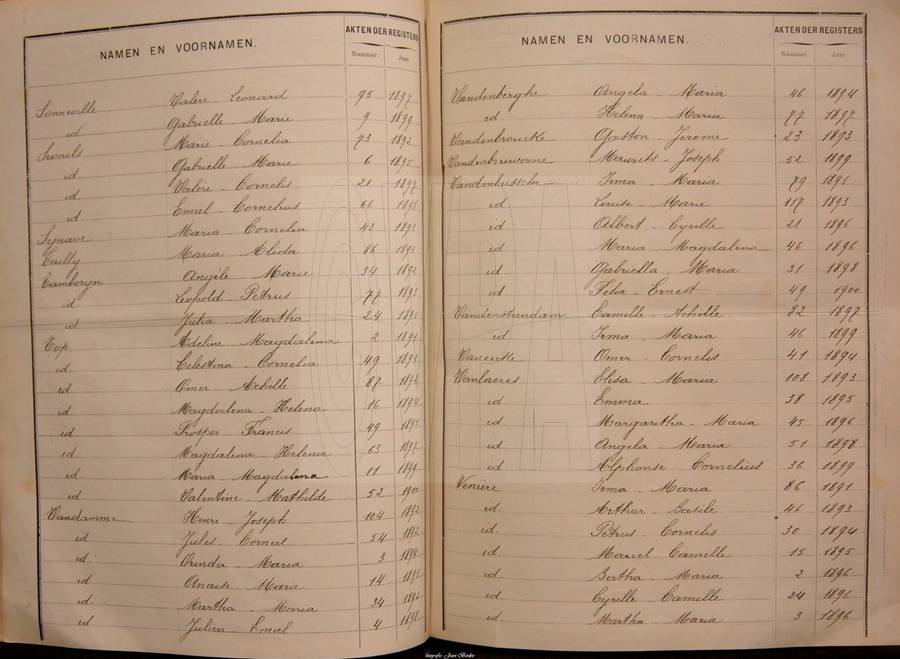 NAMEN EN VOORNAMEN.
AKTEN DER REGISTERS
Nummer. Jaar
Sonneville Valère - Leonard 95 1897
id Gabrielle - Marie 9 1899
Swaels Marie - Cornelia 73 1892
id Gabrielle - Marie 6 1895
id Valère - Cornelis 21 1897
id Emiel - Cornelius 66
Synave Maria - Cornelia 43
Tailly Maria - Alida 86 1893
Tamboryn Angèle - Marie 34 1892
id Leopold - Petrus 77 1893
id Julia - Martha 24
Top Adeline - Magdalena 2
id Celestina - Cornelia 49
id Omer - Achille 87 1892
id Magdalena - Helena 16 1894
id Prosper - Francis 49 1895
id Magdalena - Helena 63 1897
id Maria - Magdalena 11 1899
id Valentine - Mathilde 52 1900
Vandamme Henri - Joseph 104 1892
id Jules - Corneel 54 1892
id Orinda - Maria 3
id Anaïse - Marie 14
id Martha - Maria 34 1896
id Julien - Emiel 4 1898
NAMEN EN VOORNAMEN.
AKTEN DER REGISTERS
Nummer. Jaar.
Vandenberghe Angela - Maria 46 1894
id Helena - Maria 77 1897
Vandenbroucke Gaston - Jerome 23 1893
Maurits - Joseph 52 1899
Vandenbussche Irma - Maria 79
id Louise - Marie 117 1893
id Albert - Cyrille 21 1896
id Maria - Magdalena 46 1896
id Gabriella - Maria 31 1898
id Felix - Ernest 49 1900
Vandenstendam Camille - Achille 32 1897
id Irma - Maria 46 1899
Vaneecke Omer - Cornelis 41 1894
Vanlaeres Elisa - Maria 108 1893
id Emma 38 1895
id Margaritha - Maria 45 1896
id Angela - Maria 51 1898
id Alphonse Cornelius 36 1899
Venière Irma - Maria 86 1891
id Arthur - Basile 46 1893
id Petrus - Cornelis 30 1894
id Marcel - Camille 15 1895
id Bertha - Maria 2 1896
id Cyrille - Camille 24 1896
id Martha - Maria 3 1896